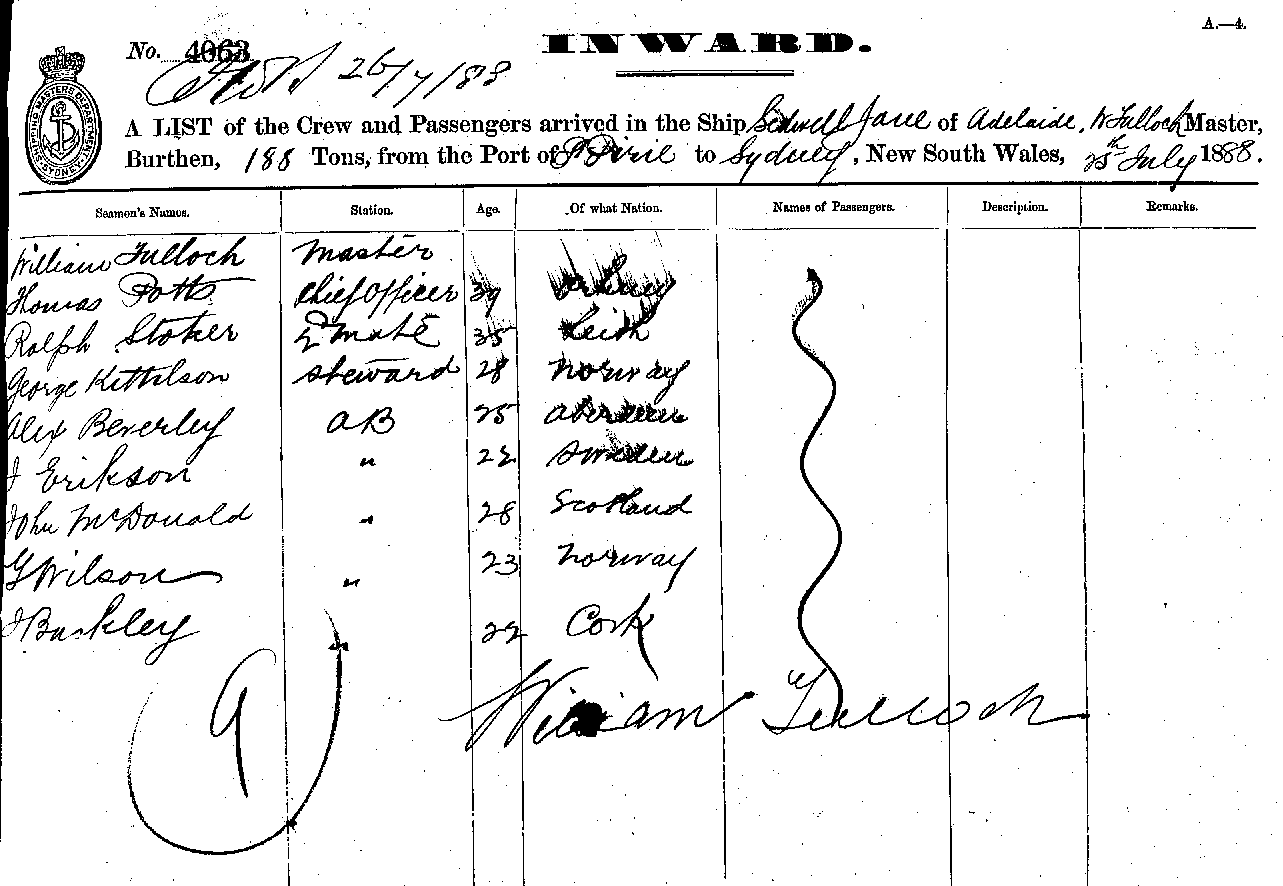 A.—4.
INWARD.
No. 4063
26/7/88
SHIPPING MASTERS DEPARTMENT SYDNEY
A LIST of the Crew and Passengers arrived in the Ship Sidwell Jane of Adelaide, W Tulloch Master,
Burthen, 188 Tons, from the Port of P Pirie to Sydney, New South Wales, 25th July 1888.
Seamen's Names. Station. Age. Of what Nation. Names of Passengers. Description. Remarks.
William Tulloch Master
Thomas Potts Chief Officer 39 Orkney
Ralph Stoker 2 Mate 35 Leith
George Kittilson Steward 28 Norway
Alex Beverley AB 25 Aberdeen
J Erikson " 22 Sweden
John McDonald " 28 Scotland
G Wilson " 23 Norway
J Buckley " 22 Cork
9
William Tulloch